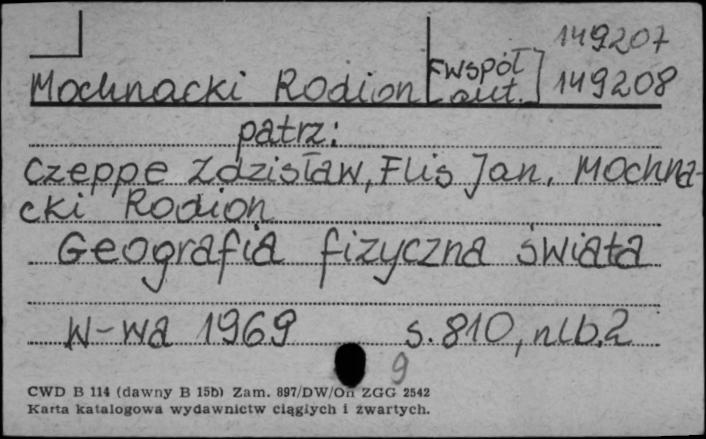 149207
Mochnacki Rodion [współ
aut.] 149208
patrz:
Czeppe Zdzisław, Flis Jan, Mochna-
cki Rodion
Geografia fizyczna świata
W-wa 1969 s. 810, nlb. 2
9
CWD B 114 (dawny B 15b) Zam. 897/DW/On ZGG 2542
Karta katalogowa wydawnictw ciągłych i zwartych.